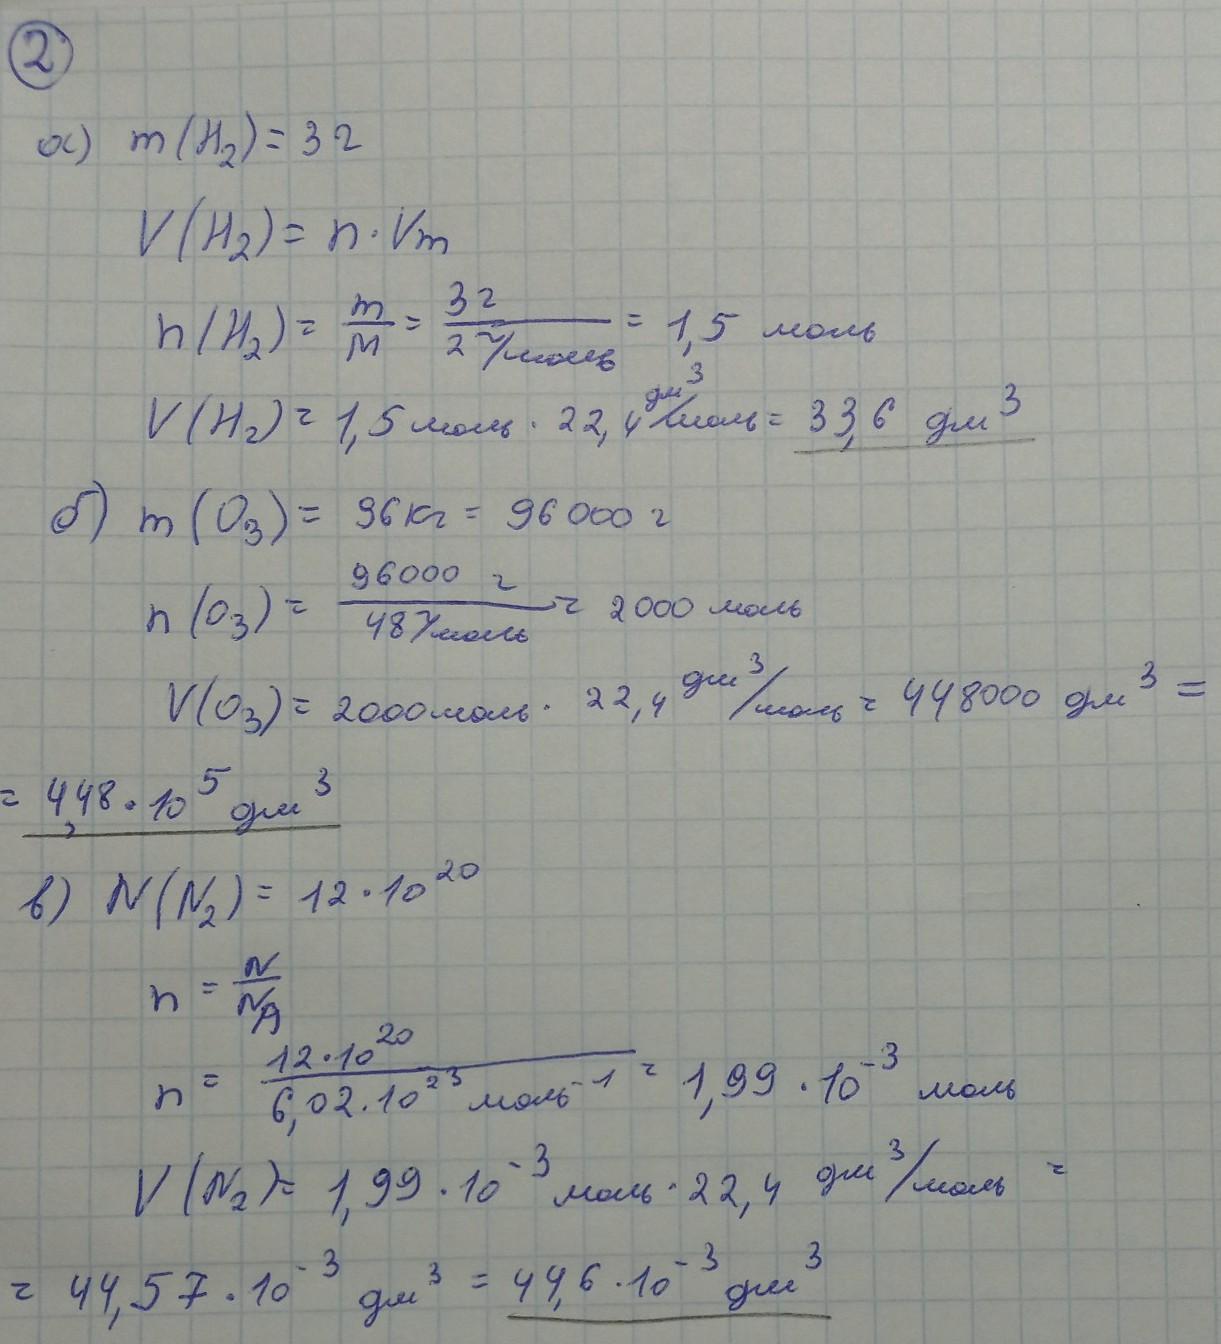 2
а) m(H₂) = 3 г
V(H₂) = n · Vm
n(H₂) = m/M = 3 г / 2 г/моль = 1,5 моль
V(H₂) = 1,5 моль · 22,4 дм³/моль = 33,6 дм³
б) m(O₃) = 96 кг = 96000 г
n(O₃) = 96000 г / 48 г/моль = 2000 моль
V(O₃) = 2000 моль · 22,4 дм³/моль = 448000 дм³ =
= 4,48 · 10⁵ дм³
в) N(N₂) = 12 · 10²⁰
n = N/NA
n = 12 · 10²⁰ / 6,02 · 10²³ моль⁻¹ = 1,99 · 10⁻³ моль
V(N₂) = 1,99 · 10⁻³ моль · 22,4 дм³/моль =
= 44,57 · 10⁻³ дм³ = 44,6 · 10⁻³ дм³